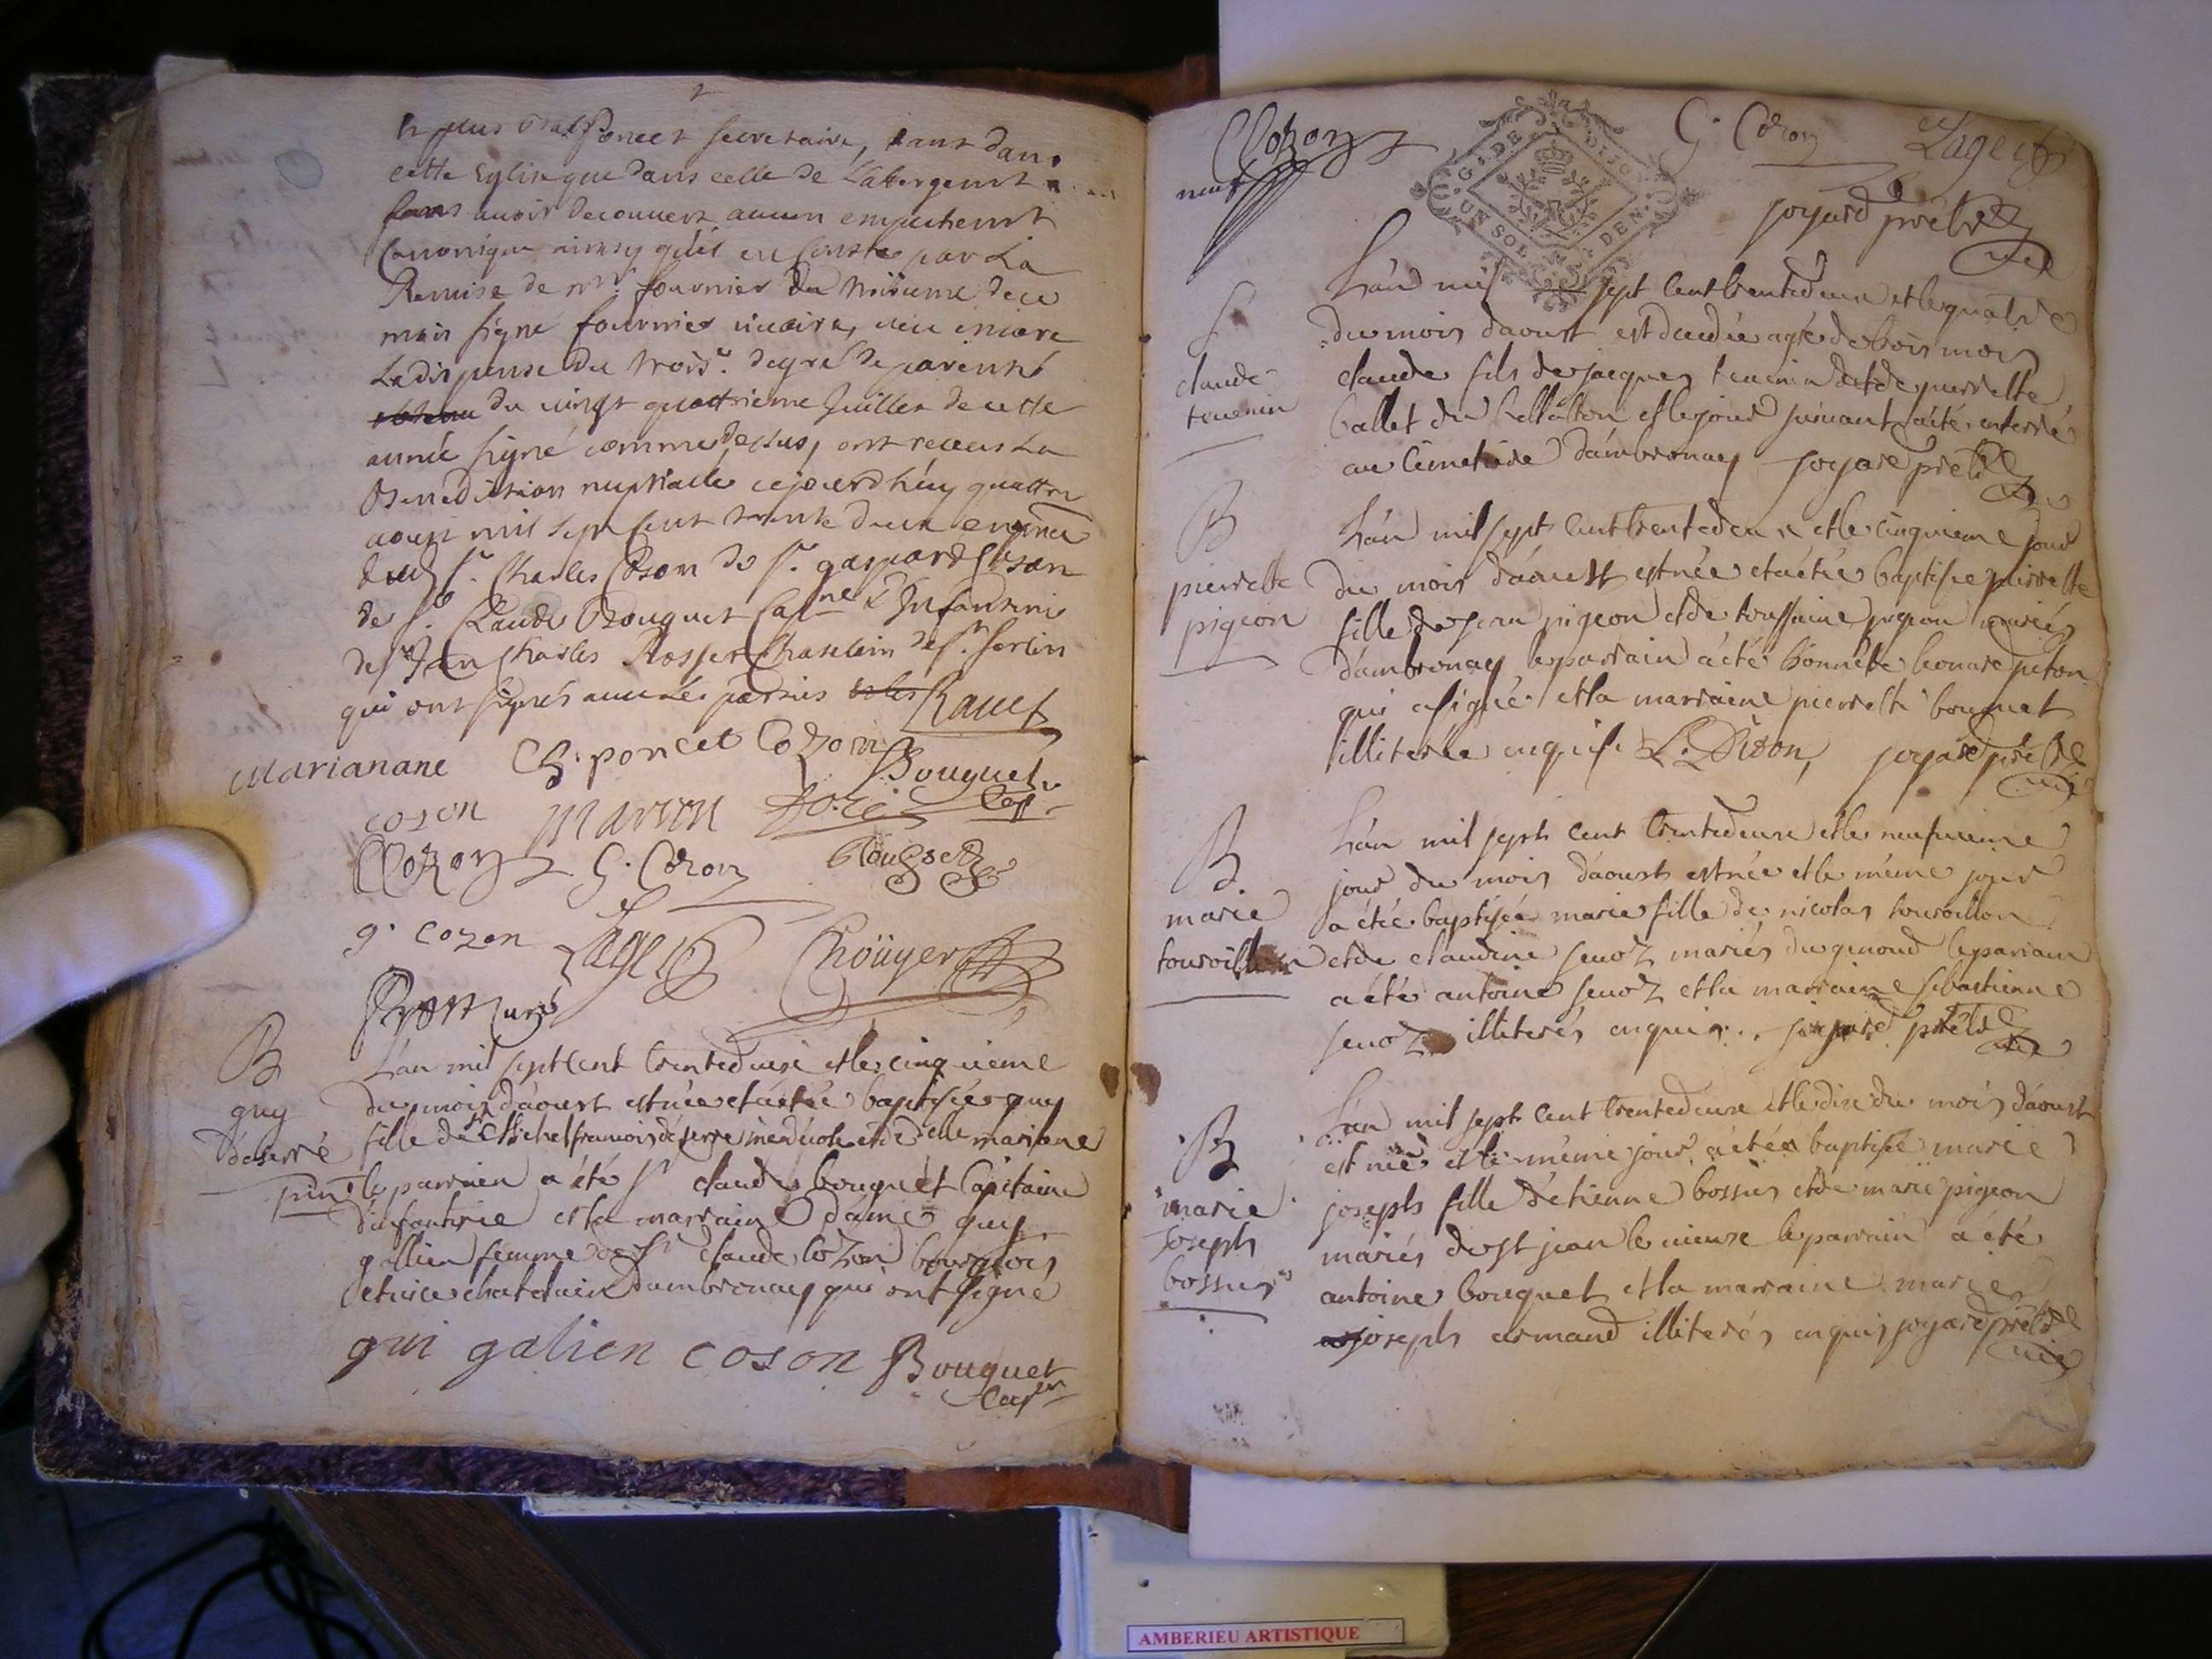 secretaire, tant dans
cette Eglise que dans celle de
sans avoir decouvert aucun empechemt
Canonique ainsy qu'il en Conste par La
Remise de mr. fournier du de ce
mois signé fournier vicaire, veu encore
La dispense du trois.e degré de parenté
du vingt quattrieme Juillet de cette
année signé comme dessus, ont receus La
Benediction nuptialle cejourdhuy quattre
aoust mil sept cent trente deux en
dud Sr. Charles Coson de Sr. gaspard Coson
de Sr. Claude Bouquet Capne d'Infanterie
de Sr Jean Charles de St. Sorlin
qui ont signés avec les parties Ravet
Marianane Ch. poncet Cozon Bouquet
coson Marion Capn
Cozon G. Cozon
g. cozon Lager Choüyer
curé
B
guy
déserré
L'an mil sept cent trente deux et le cinquieme
du mois d'aoust est née et a été baptisée guy
fille de Sr Michel françois déserre et de dlle mariane
pin le parrain a été Sr claude bouquet Capitaine
d'infanterie et la marraine dame guy
gallien femme de Sr claude cozon bourgeois
chatelain dambronay qui ont signé
gui galien coson Bouquet
Capn
Cozon G. Cozon Lager
neuf
G. DE DIJON
UN SOL DEN.
joyard prêtre
vic
L'an mil sept cent trente deux et le quatre
du mois daoust est decedé agé de trois mois
claude
tevenin
claude fils de jacques tevenin et de pierrette
ballet du et le jour suivant a été enterré
au Cimetiere d'ambronay joyard prêtre
B
pierrette
pigeon
L'an mil sept cent trente deux et le cinquieme jour
du mois d'aoust est née et a été baptisée pierrette
fille de jean pigeon et de toussaine pigeon mariés
d'ambronay le parrain a été honnête
qui a signé et la marraine pierrette bouquet
illiterée enquise joyard prêtre
vic
B.
marie
touroillon
L'an mil sept cent trente deux et le neufvieme
jour du mois d'aoust est née et le même jour
a été baptisée marie fille de nicolas touroillon
et de claudine senoz mariés du genoud le parrain
a été antoine senoz et la marraine sebastienne
senoz illiterés enquis. joyard prêtre
vic
B
marie
joseph
bossus
L'an mil sept cent trente deux et le dix du mois d'aoust
est née et le même jour a été baptisée marie
joseph fille d'etienne bossus et de marie pigeon
mariés de st jean le vieux le parrain a été
antoine bouquet et la marraine marie
joseph armand illiterés enquis joyard prêtre
vic
AMBERIEU ARTISTIQUE